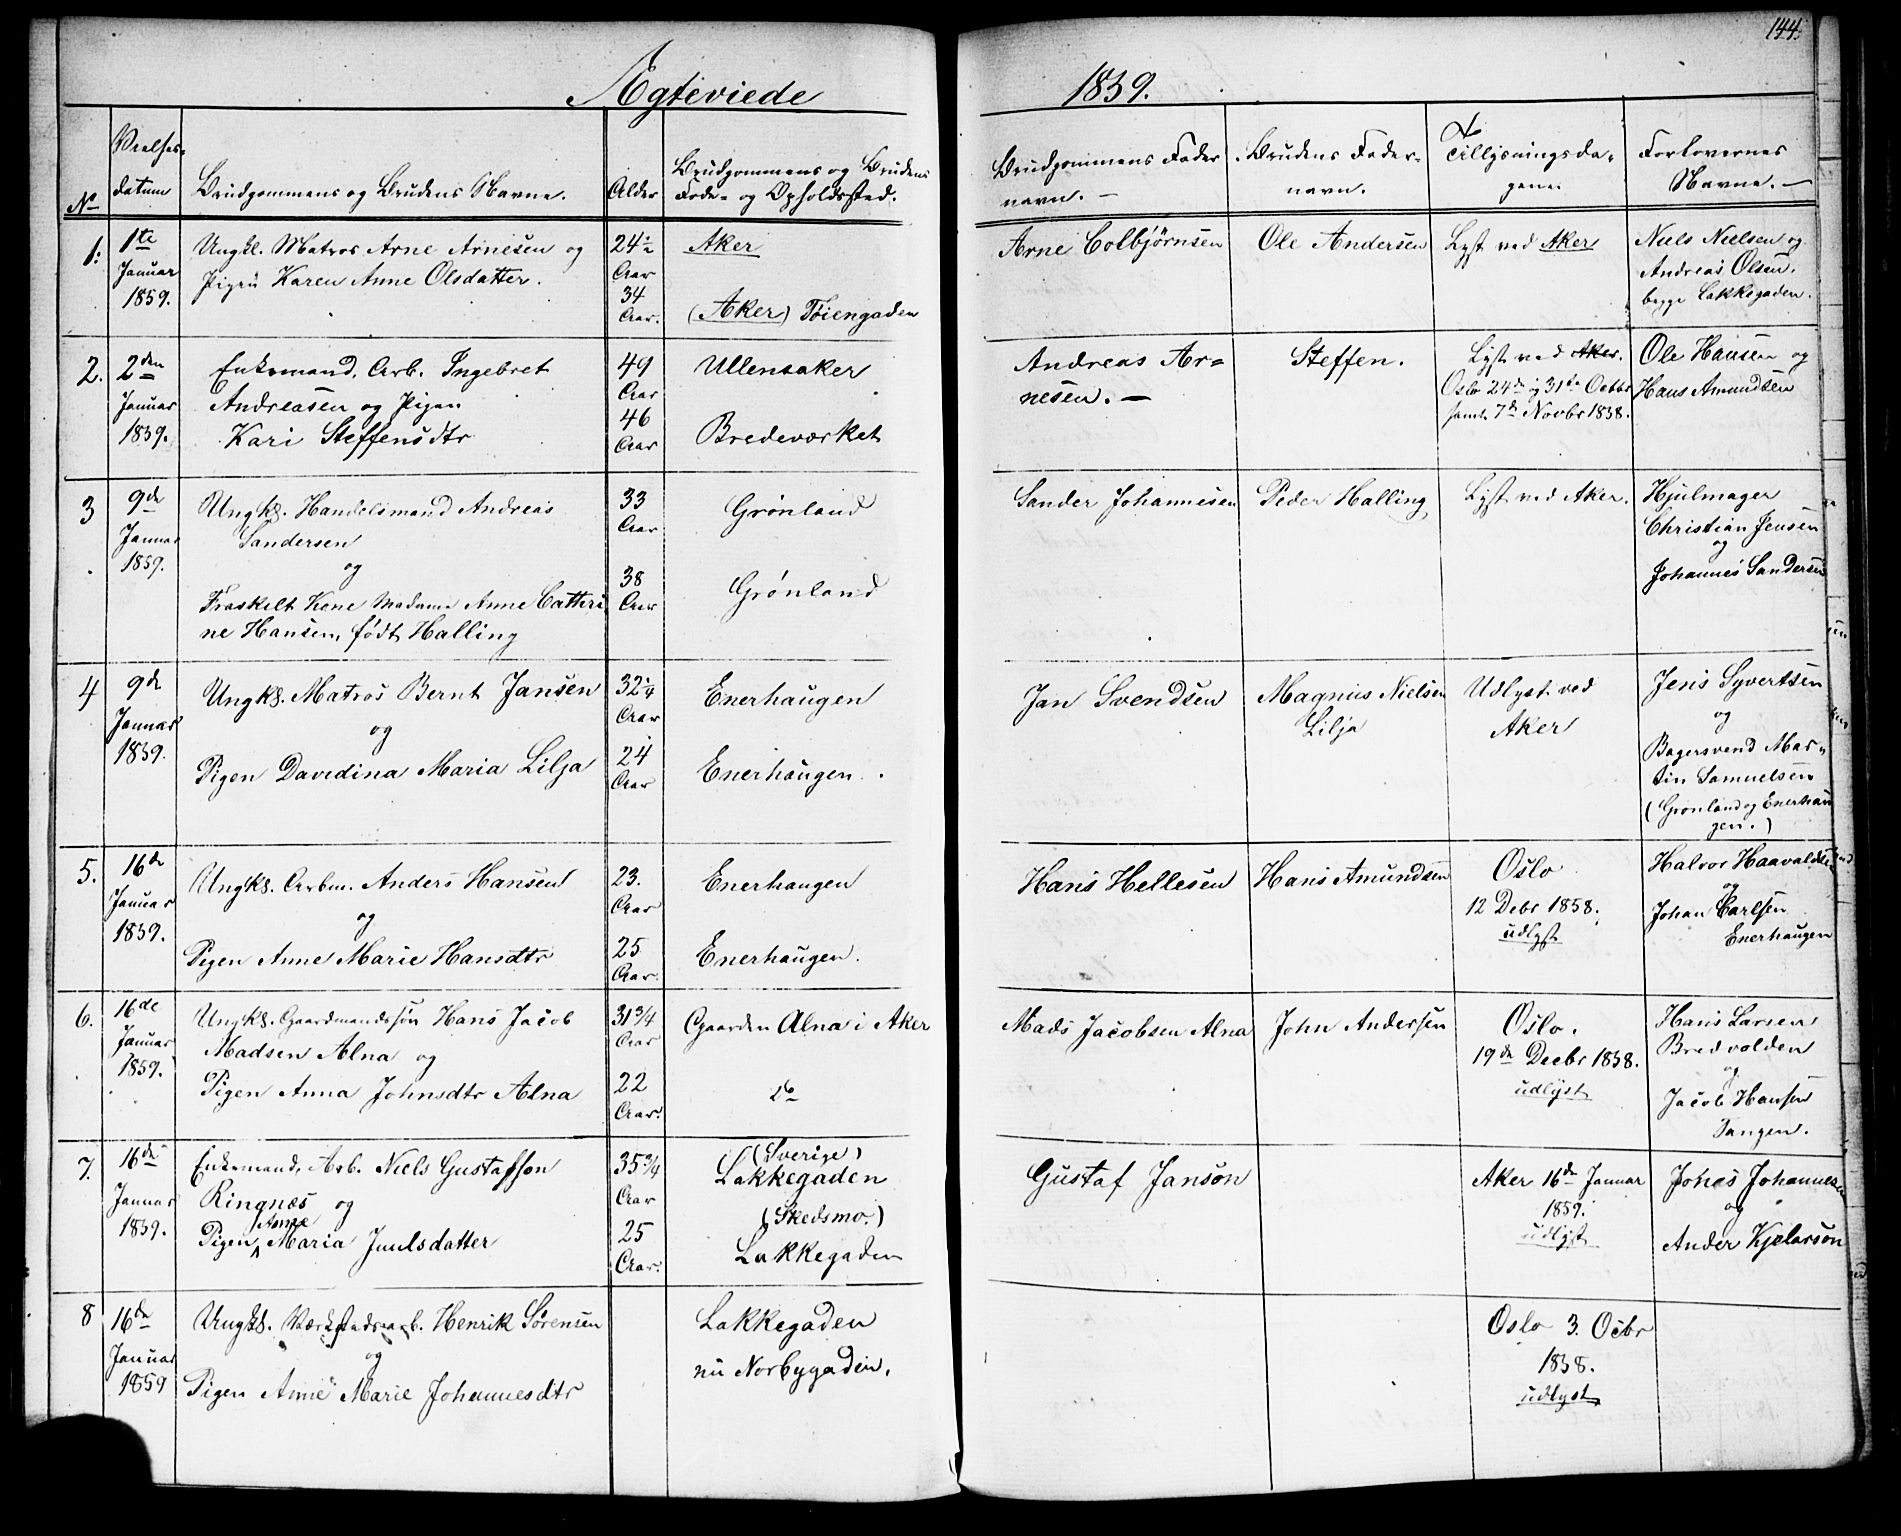 144.
Ægteviede 1859.
No
Vielses-
datum
Brudgommens og Brudens Navne.
Alder
Brudgommens og Brudens
Føde- og Opholdssted.
Brudgommens Fader
navn. —
Brudens Fader-
navn.
Tillysningsda-
gene.
Forlovernes
Navne. —
1.
1te
Januar
1859.
Ungkl. Matros Arne Arnesen og
Pigen Karen Anne Olsdatter.
24
Aar
34
Aar.
Aker
(Aker) Tøiengaden
Arne Colbjørnsen
Ole Andersen
Lyst ved Aker
Niels Nielsen og
Andreas Olsen.
begge Lakkegaden.
2.
2den
Januar
1859.
Enkemand, Arb. Ingebret
Andreasen og Pigen
Kari Steffensdtr
49
Aar
46
Aar
Ullensaker
Bredeværket
Andreas Ar=
nesen. —
Steffen.
Lyst ved Aker.
Oslo 24de og 31te Octbr
samt 7de Novbr 1858.
Ole Hansen og
Hans Amundsen
3
9de
Januar
1859.
Ungk. Handelsmand Andreas
Sandersen
og
Fraskilt Kone Madame Anne Cathri
ne Hansen, født Halling
33
Aar
38
Aar
Grønland
Grønland
Sander Johannesen
Peder Halling
Lyst ved Aker.
Hjulmager
Christian Jensen
og
Johannes Sandersen
4
9de
Januar
1859.
Ungk. Matros Bernt Jansen
og
Pigen Davidina Maria Lilja
32 1/4
Aar
24
Aar
Enerhaugen
Enerhaugen.
Jan Svendsen
Magnus Nielsen
Lilja
Udlyst ved
Aker
Jens Syvertsen
og
Bagersvend Mar-
tin Samuelsen
(Grønland og Enerhau
gen.)
5.
16de
Januar
1859.
Ungk. Arbm. Anders Hansen
og
Pigen Anne Marie Hansdtr
23.
Aar
25
Aar.
Enerhaugen
Enerhaugen.
Hans Hellesen
Hans Amundsen
Oslo
12 Debr 1858.
udlyst
Halvor Haavaldsen
og
Johan Carlsen
Enerhaugen
6.
16de
Januar
1859.
Ungk. Gaardmandssøn Hans Jacob
Madsen Alna og
Pigen Anna Johnsdtr Alna
31 3/4
Aar
22
Aar.
Gaarden Alna i Aker
do
Mads Jacobsen Alna
John Andersen
Oslo.
19de Decbr 1858.
udlyst
Hans Larsen
Bredvolden
og
Jacob Hansen
Tangen.
7.
16de
Januar
1859.
Enkemand, Arb. Niels Gustafson
Ringnæs og
Pigen Anne Maria Juulsdatter
35 3/4
Aar
25
Aar.
(Sverige)
Lakkegaden
(Skedsmo.)
Lakkegaden
Gustaf Janson
Aker 16de Januar
1859.
udlyst
Johes Johannesen
og
Ander Kjelarson
8
16de
Januar
1859
Ungk. Værkstedsarb. Henrik Sørensen
og
Pigen Anne Marie Johannesdtr
Lakkegaden
nu Norbygaden.
Oslo 3. Octbr
1858.
udlyst